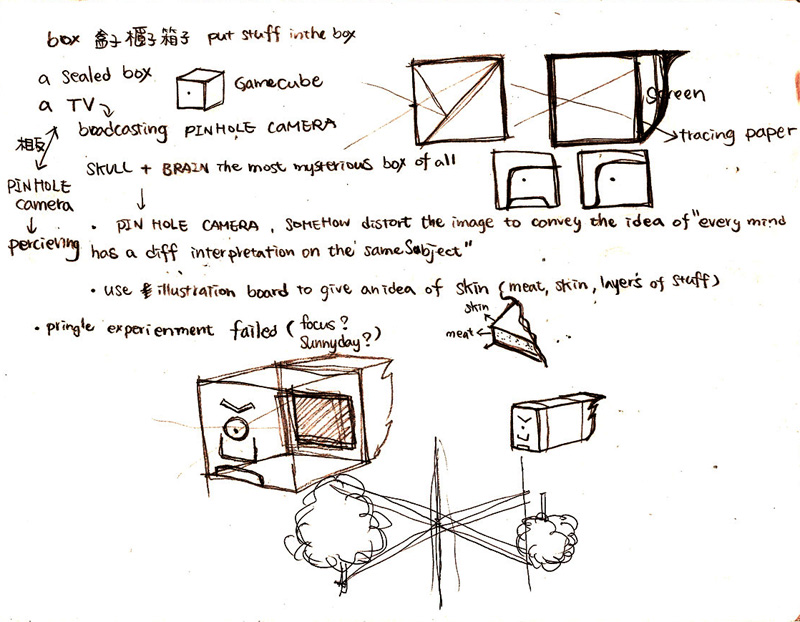 box 盒子 櫃子 箱子 put stuff in the box
a sealed box
Gamecube
a TV
broadcasting PINHOLE CAMERA
相反
Screen
tracing paper
SKULL + BRAIN The most mysterious box of all
PINHOLE
camera
percieving
• PIN HOLE CAMERA, SOMEHOW distort the image to convey the idea of "every mind
has a diff interpretation on the same subject"
• use illustration board to give an idea of skin (meat, skin, layers of stuff)
skin
meat
• pringle experienment failed (focus?
Sunnyday?)